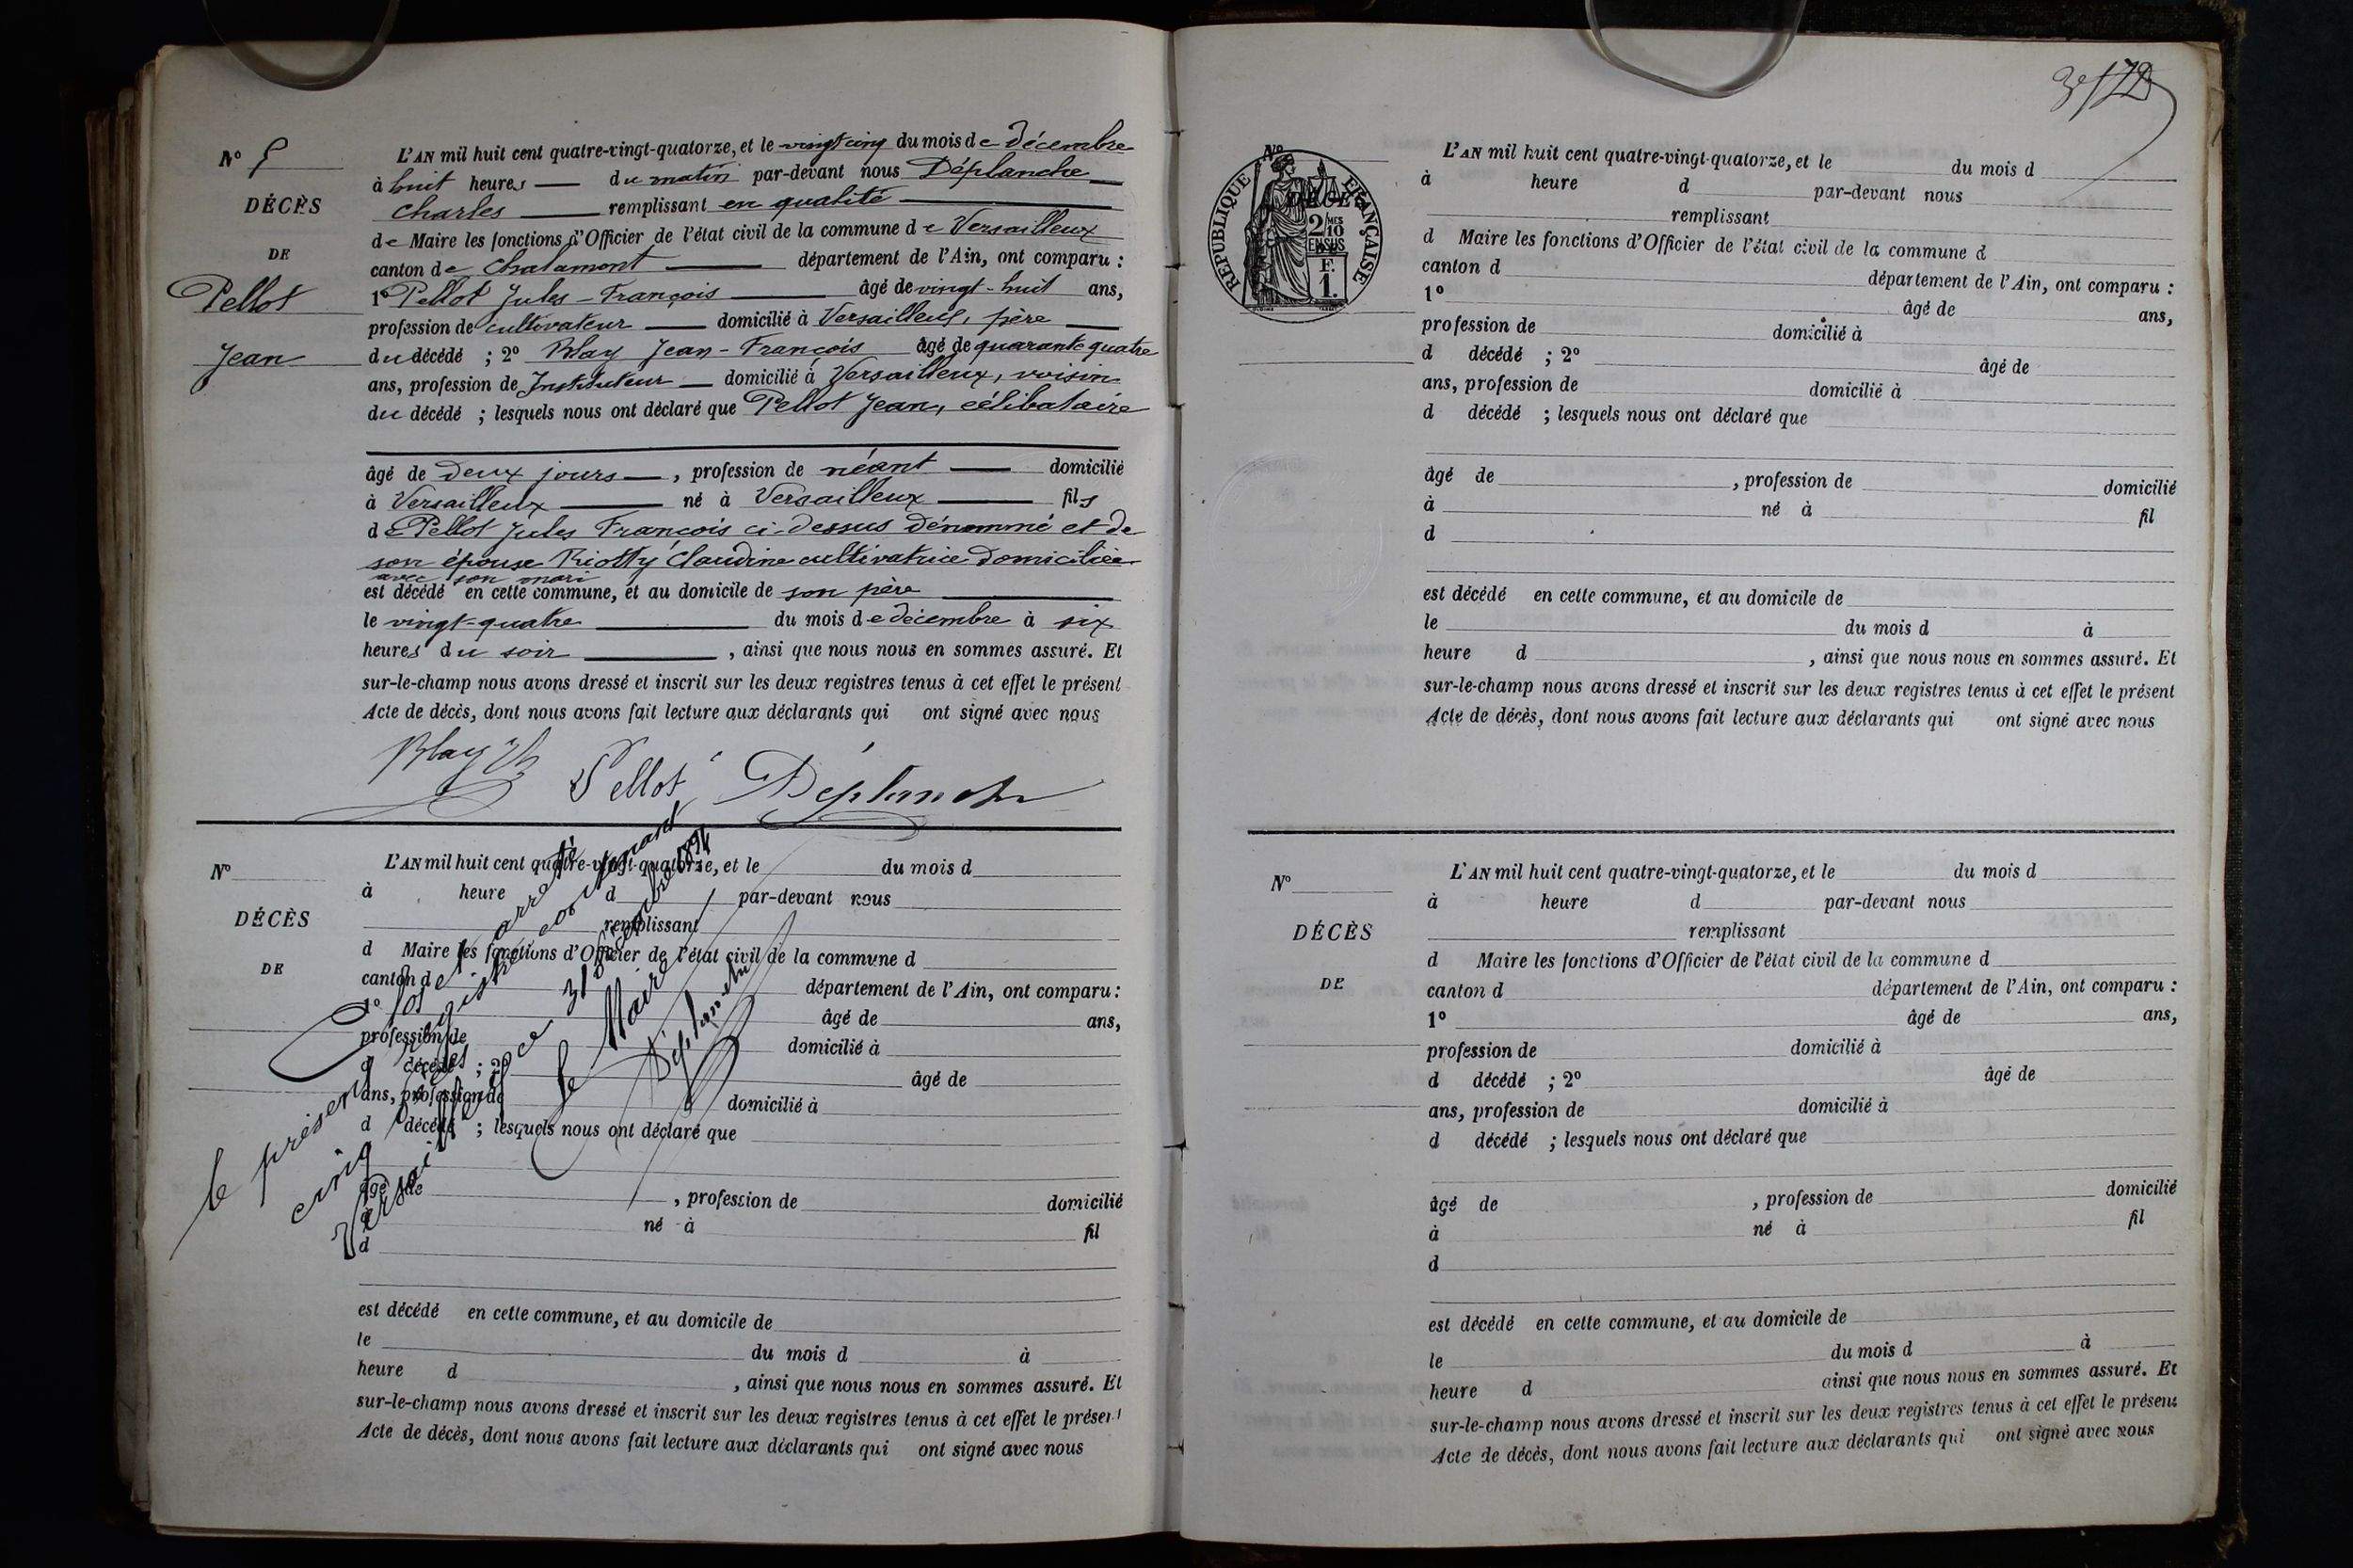 N° 5
DÉCÈS
DE
Pellot
Jean
L'AN mil huit cent quatre-vingt-quatorze, et le vingt cinq du mois de décembre
à huit heures du matin par-devant nous Déplanche
Charles remplissant en qualité
de Maire les fonctions d'Officier de l'état civil de la commune de Versailleux
canton de Chalamont département de l'Ain, ont comparu :
1° Pellot Jules-François âgé de vingt-huit ans,
profession de cultivateur domicilié à Versailleux, père
du décédé ; 2° Blay Jean-François âgé de quarante quatre
ans, profession de Instituteur domicilié à Versailleux, voisin
du décédé ; lesquels nous ont déclaré que Pellot Jean, célibataire
âgé de deux jours, profession de néant domicilié
à Versailleux né à Versailleux fils
de Pellot Jules François ci-dessus dénommé et de
son épouse Riotty Claudine cultivatrice domiciliée
avec son mari
est décédé en cette commune, et au domicile de son père
le vingt-quatre du mois de décembre à six
heures du soir, ainsi que nous nous en sommes assuré. Et
sur-le-champ nous avons dressé et inscrit sur les deux registres tenus à cet effet le présent
Acte de décès, dont nous avons fait lecture aux déclarants qui ont signé avec nous
Blay Pellot Déplanche
N°
DÉCÈS
DE
L'AN mil huit cent quatre-vingt-quatorze, et le du mois d
à heure d par-devant nous
remplissant
d Maire les fonctions d'Officier de l'état civil de la commune d
canton d département de l'Ain, ont comparu :
1° âgé de ans,
profession de domicilié à
d décédé ; 2° âgé de
ans, profession de domicilié à
d décédé ; lesquels nous ont déclaré que
âgé de , profession de domicilié
à né à fil
d
est décédé en cette commune, et au domicile de
le du mois d à
heure d , ainsi que nous nous en sommes assuré. Et
sur-le-champ nous avons dressé et inscrit sur les deux registres tenus à cet effet le présent
Acte de décès, dont nous avons fait lecture aux déclarants qui ont signé avec nous
Clos et arrêté
le présent registre contenant
cinq actes
Versailleux ce 31 décembre 1894
Le Maire
Déplanche
N°
RÉPUBLIQUE FRANÇAISE
2/10 MES
EN SUS
F.
1.
L'AN mil huit cent quatre-vingt-quatorze, et le du mois d
à heure d par-devant nous
remplissant
d Maire les fonctions d'Officier de l'état civil de la commune d
canton d département de l'Ain, ont comparu :
1° âgé de ans,
profession de domicilié à
d décédé ; 2° âgé de
ans, profession de domicilié à
d décédé ; lesquels nous ont déclaré que
âgé de , profession de domicilié
à né à fil
d
est décédé en cette commune, et au domicile de
le du mois d à
heure d , ainsi que nous nous en sommes assuré. Et
sur-le-champ nous avons dressé et inscrit sur les deux registres tenus à cet effet le présent
Acte de décès, dont nous avons fait lecture aux déclarants qui ont signé avec nous
N°
DÉCÈS
DE
L'AN mil huit cent quatre-vingt-quatorze, et le du mois d
à heure d par-devant nous
remplissant
d Maire les fonctions d'Officier de l'état civil de la commune d
canton d département de l'Ain, ont comparu :
1° âgé de ans,
profession de domicilié à
d décédé ; 2° âgé de
ans, profession de domicilié à
d décédé ; lesquels nous ont déclaré que
âgé de , profession de domicilié
à né à fil
d
est décédé en cette commune, et au domicile de
le du mois d à
heure d ainsi que nous nous en sommes assuré. Et
sur-le-champ nous avons dressé et inscrit sur les deux registres tenus à cet effet le présent
Acte de décès, dont nous avons fait lecture aux déclarants qui ont signé avec nous